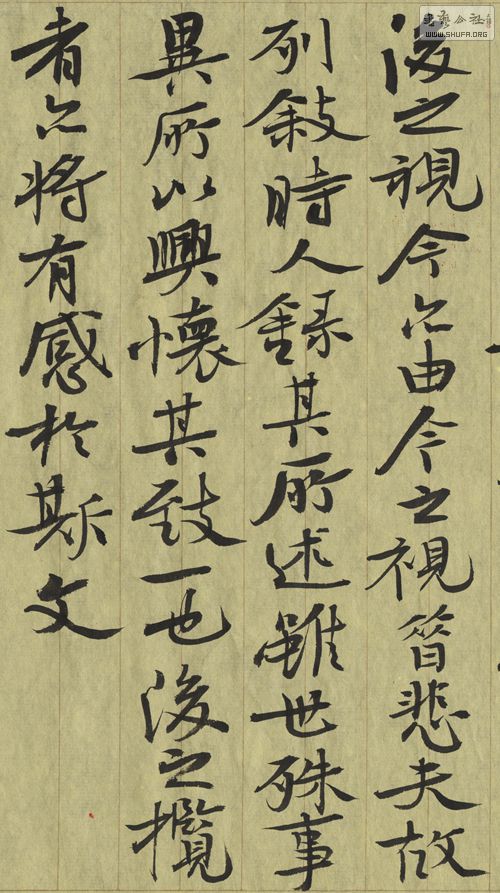 後之視今亦由今之視昔悲夫故
列敘時人錄其所述雖世殊事
異所以興懷其致一也後之攬
者亦將有感於斯文
書藝公社
WWW.SHUFA.ORG